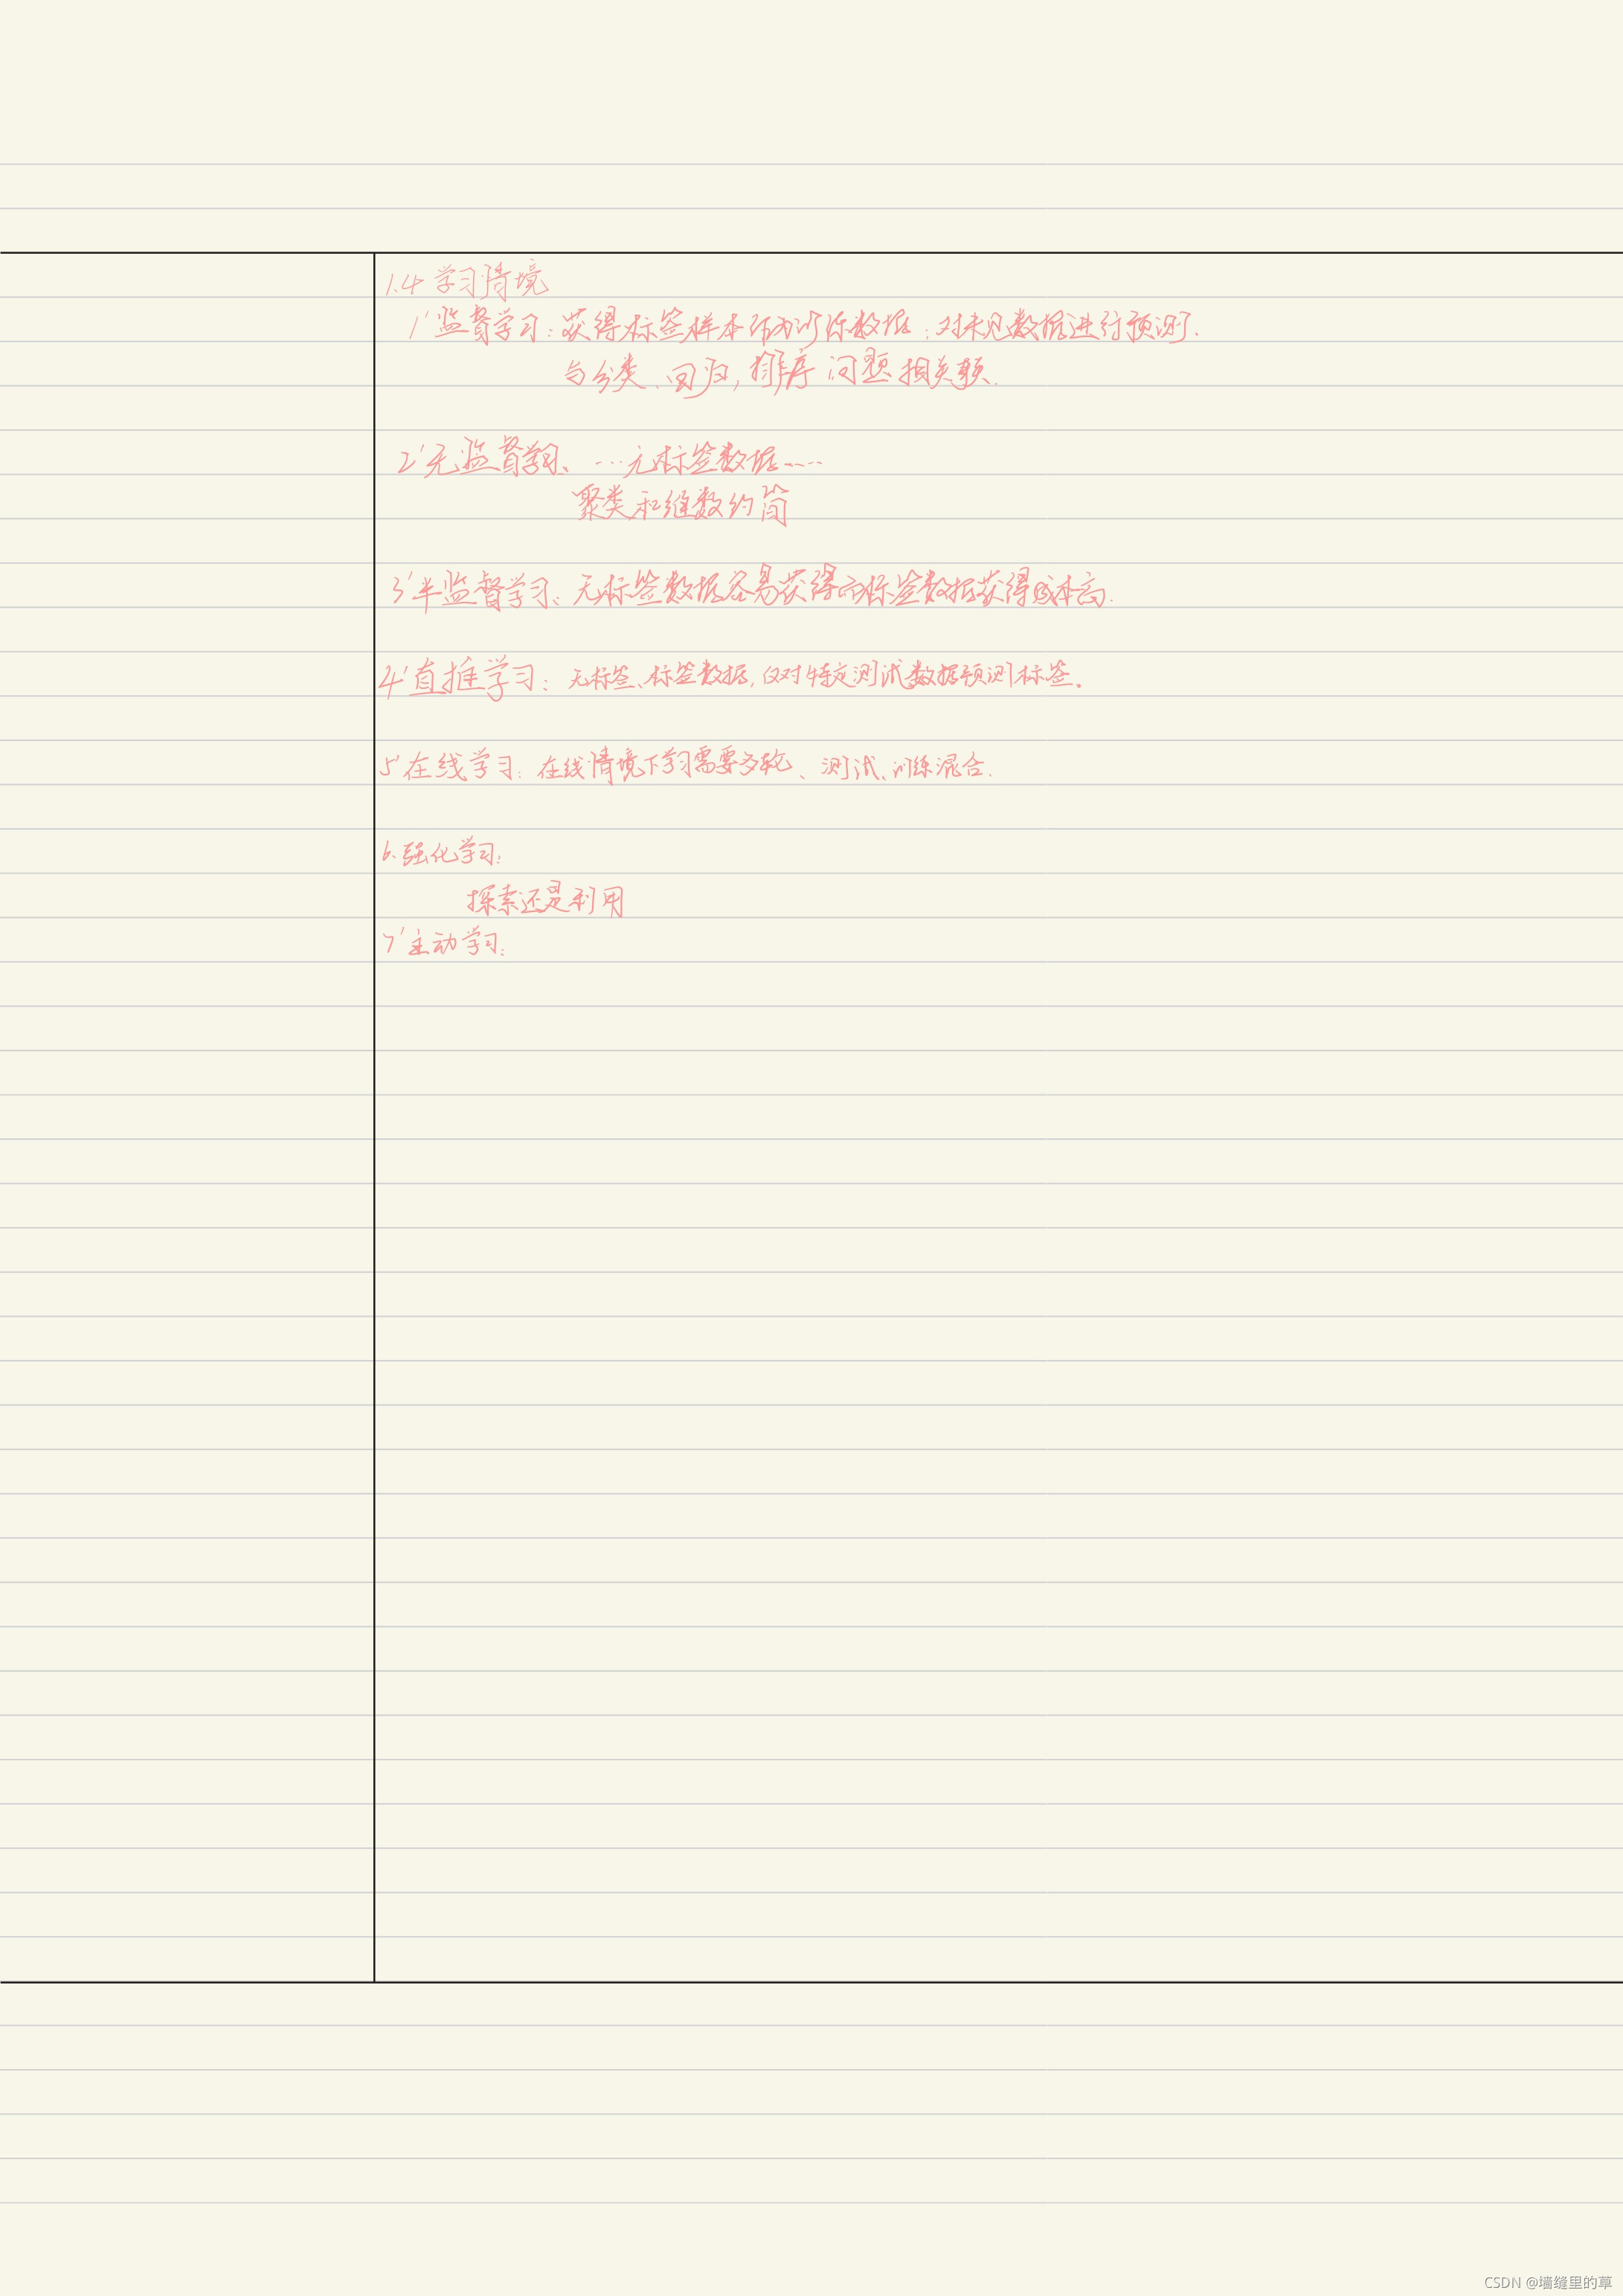 1.4 学习情境
1' 监督学习：获得标签样本作为训练数据；对未见数据进行预测.
与分类、回归，排序问题相关联.
2' 无监督学习、…无标签数据……
聚类和维数约简
3' 半监督学习：无标签数据容易获得而标签数据获得成本高.
4' 直推学习：无标签、标签数据，仅对特定测试数据预测标签。
5' 在线学习：在线情境下学习需要多轮、测试、训练混合.
6. 强化学习：
探索还是利用
7' 主动学习：
CSDN @墙缝里的草